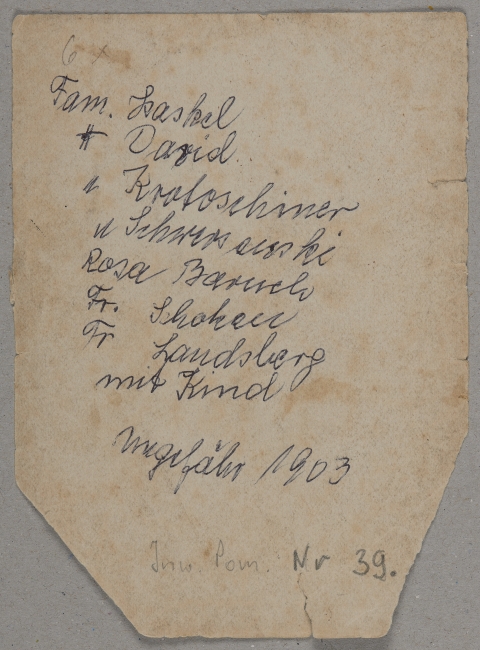 6 x
Fam. Haskel
" David.
" Krotoschiner
" Schwersenski
Rosa Baruch
Fr. Schoken
Fr Landsberg
mit Kind
Ungefähr 1903
Inw. Pom. Nr 39.